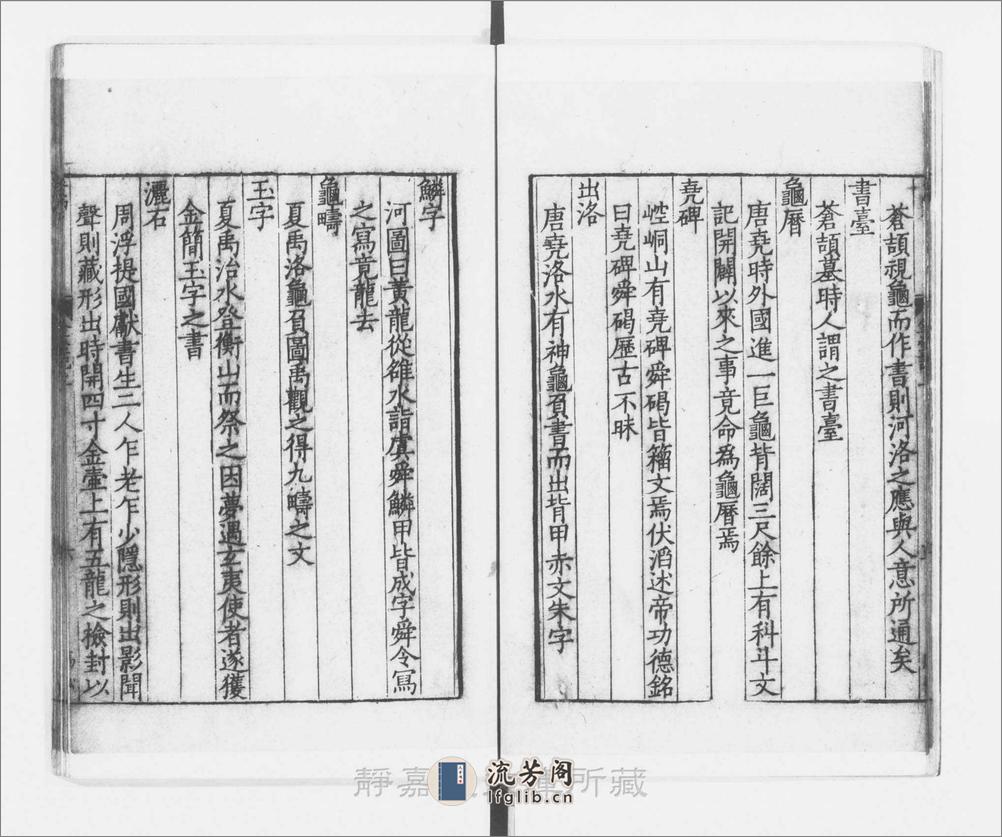 蒼頡視龜而作書則河洛之應與人意所通矣
書臺
蒼頡墓時人謂之書臺
龜曆
唐堯時外國進一巨龜背闊三尺餘上有科斗文
記開闢以來之事竟命為龜曆焉
堯碑
崆峒山有堯碑舜碣皆籀文焉伏滔述帝功德銘
曰堯碑舜碣歷古不昧
出洛
唐堯洛水有神龜負書而出背甲赤文朱字
鱗字
河圖曰黃龍從雒水詣虞舜鱗甲皆成字舜令寫
之寫竟龍去
龜疇
夏禹洛龜負圖禹觀之得九疇之文
玉字
夏禹治水登衡山而祭之因夢遇玄夷使者遂獲
金簡玉字之書
灑石
周浮提國獻書生二人乍老乍少隱形則出影聞
聲則藏形出時開四寸金壷上有五龍之檢封以
靜嘉所藏
流芳阁
lfglib.cn